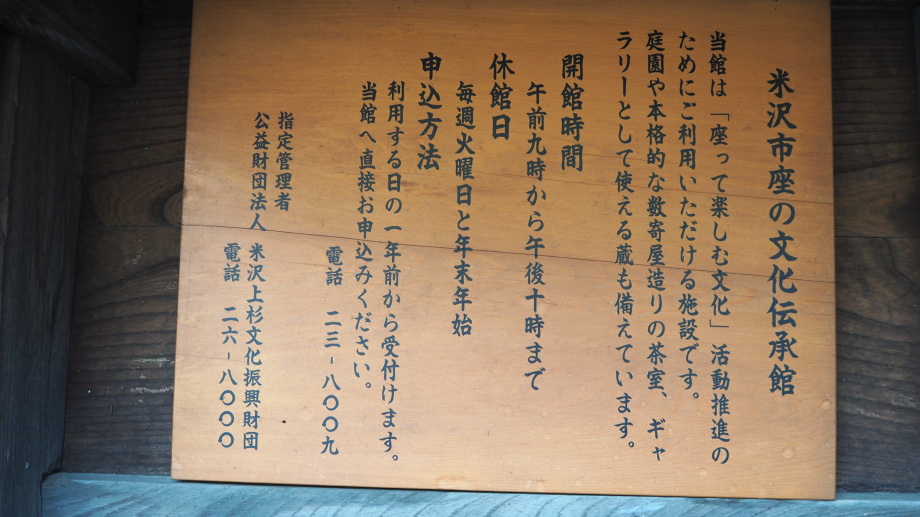 米沢市座の文化伝承館
当館は「座って楽しむ文化」活動推進の
ためにご利用いただける施設です。
庭園や本格的な数寄屋造りの茶室、ギャ
ラリーとして使える蔵も備えています。
開館時間
午前九時から午後十時まで
休館日
毎週火曜日と年末年始
申込方法
利用する日の一年前から受付けます。
当館へ直接お申込みください。
電話 二三-八〇〇九
指定管理者
公益財団法人 米沢上杉文化振興財団
電話 二六-八〇〇〇